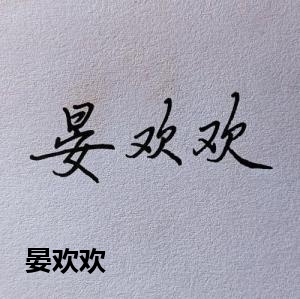 晏欢欢
晏欢欢